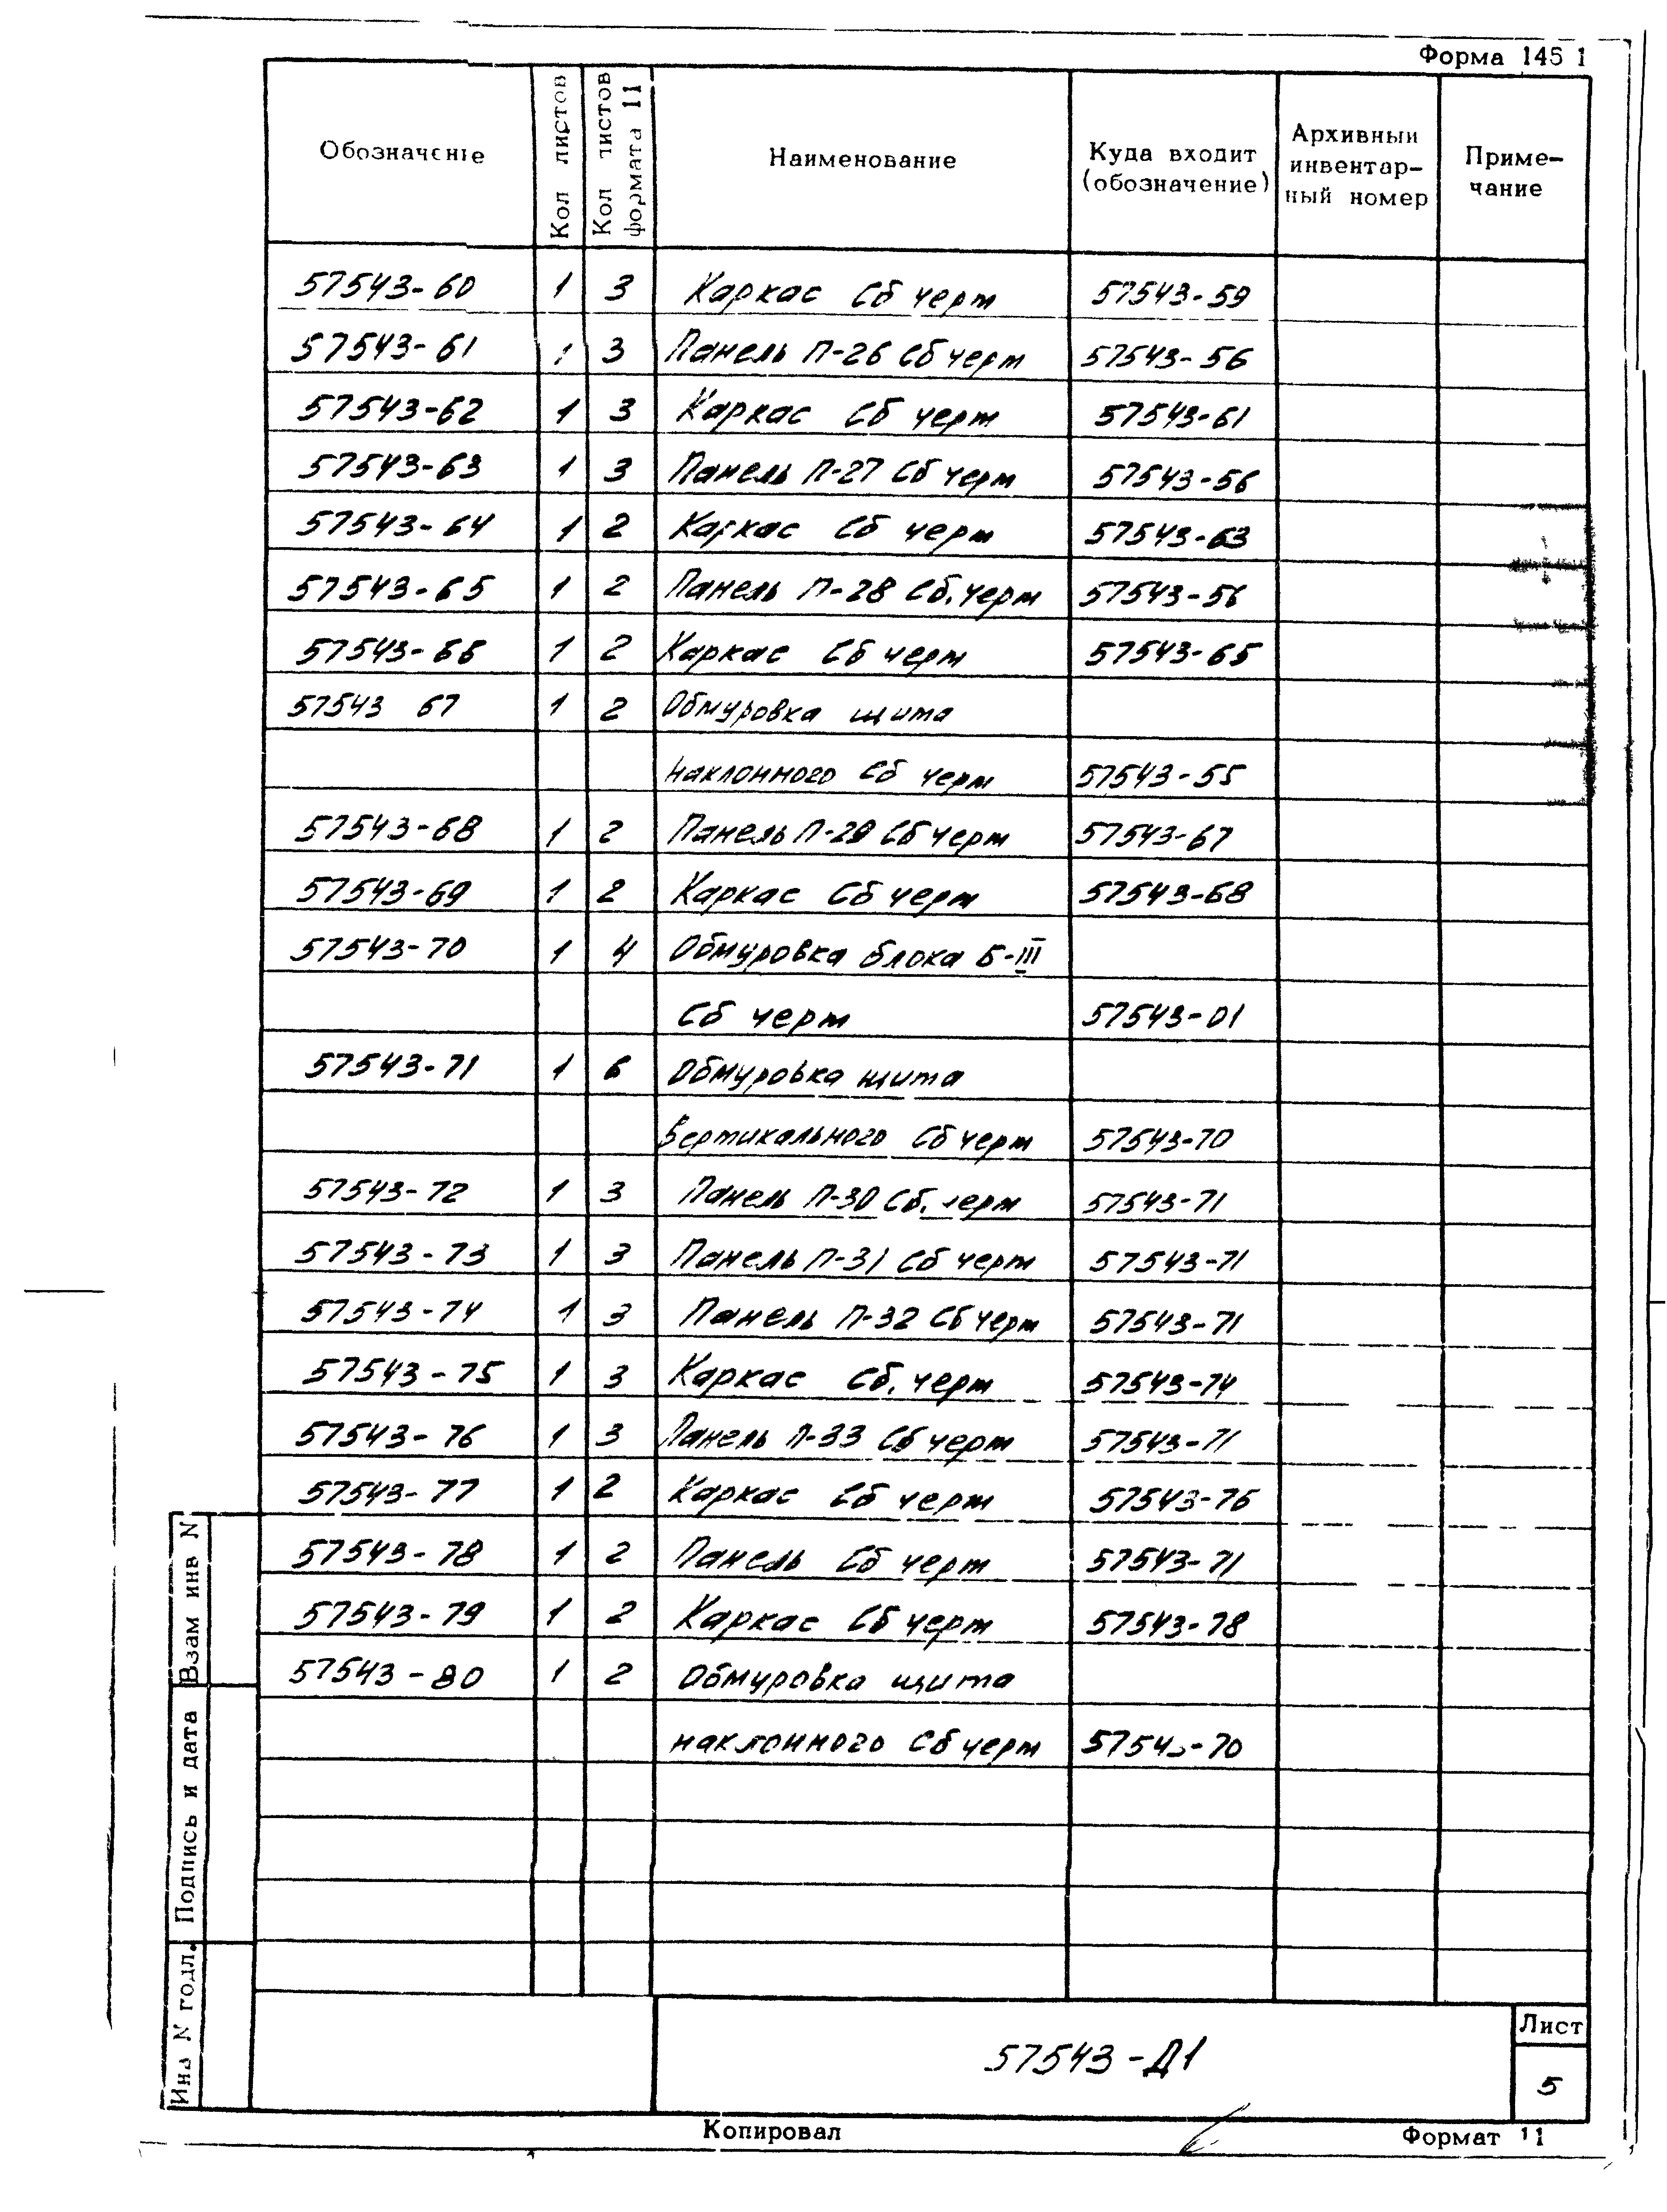 Форма 145 1
Обозначение | Кол листов | Кол листов формата 11 | Наименование | Куда входит (обозначение) | Архивный инвентарный номер | Приме-чание
57543-60 1 3 Каркас Сб черт 57543-59
57543-61 1 3 Панель П-26 Сб черт 57543-56
57543-62 1 3 Каркас Сб черт 57543-61
57543-63 1 3 Панель П-27 Сб черт 57543-56
57543-64 1 2 Каркас Сб черт 57543-63
57543-65 1 2 Панель П-28 Сб. черт 57543-56
57543-66 1 2 Каркас Сб черт 57543-65
57543 67 1 2 Обмуровка щита
наклонного Сб черт 57543-55
57543-68 1 2 Панель П-29 Сб черт 57543-67
57543-69 1 2 Каркас Сб черт 57543-68
57543-70 1 4 Обмуровка блока Б-III
Сб черт 57543-01
57543-71 1 6 Обмуровка щита
Вертикального Сб черт 57543-70
57543-72 1 3 Панель П-30 Сб. черт 57543-71
57543-73 1 3 Панель П-31 Сб черт 57543-71
57543-74 1 3 Панель П-32 Сб черт 57543-71
57543-75 1 3 Каркас Сб. черт 57543-74
57543-76 1 3 Панель П-33 Сб черт 57543-71
57543-77 1 2 Каркас Сб черт 57543-76
57543-78 1 2 Панель Сб черт 57543-71
57543-79 1 2 Каркас Сб черт 57543-78
57543-80 1 2 Обмуровка щита
наклонного Сб черт 57543-70
Взам инв N
Подпись и дата
Инв N подл.
57543-Д1
Лист
5
Копировал
Формат 11